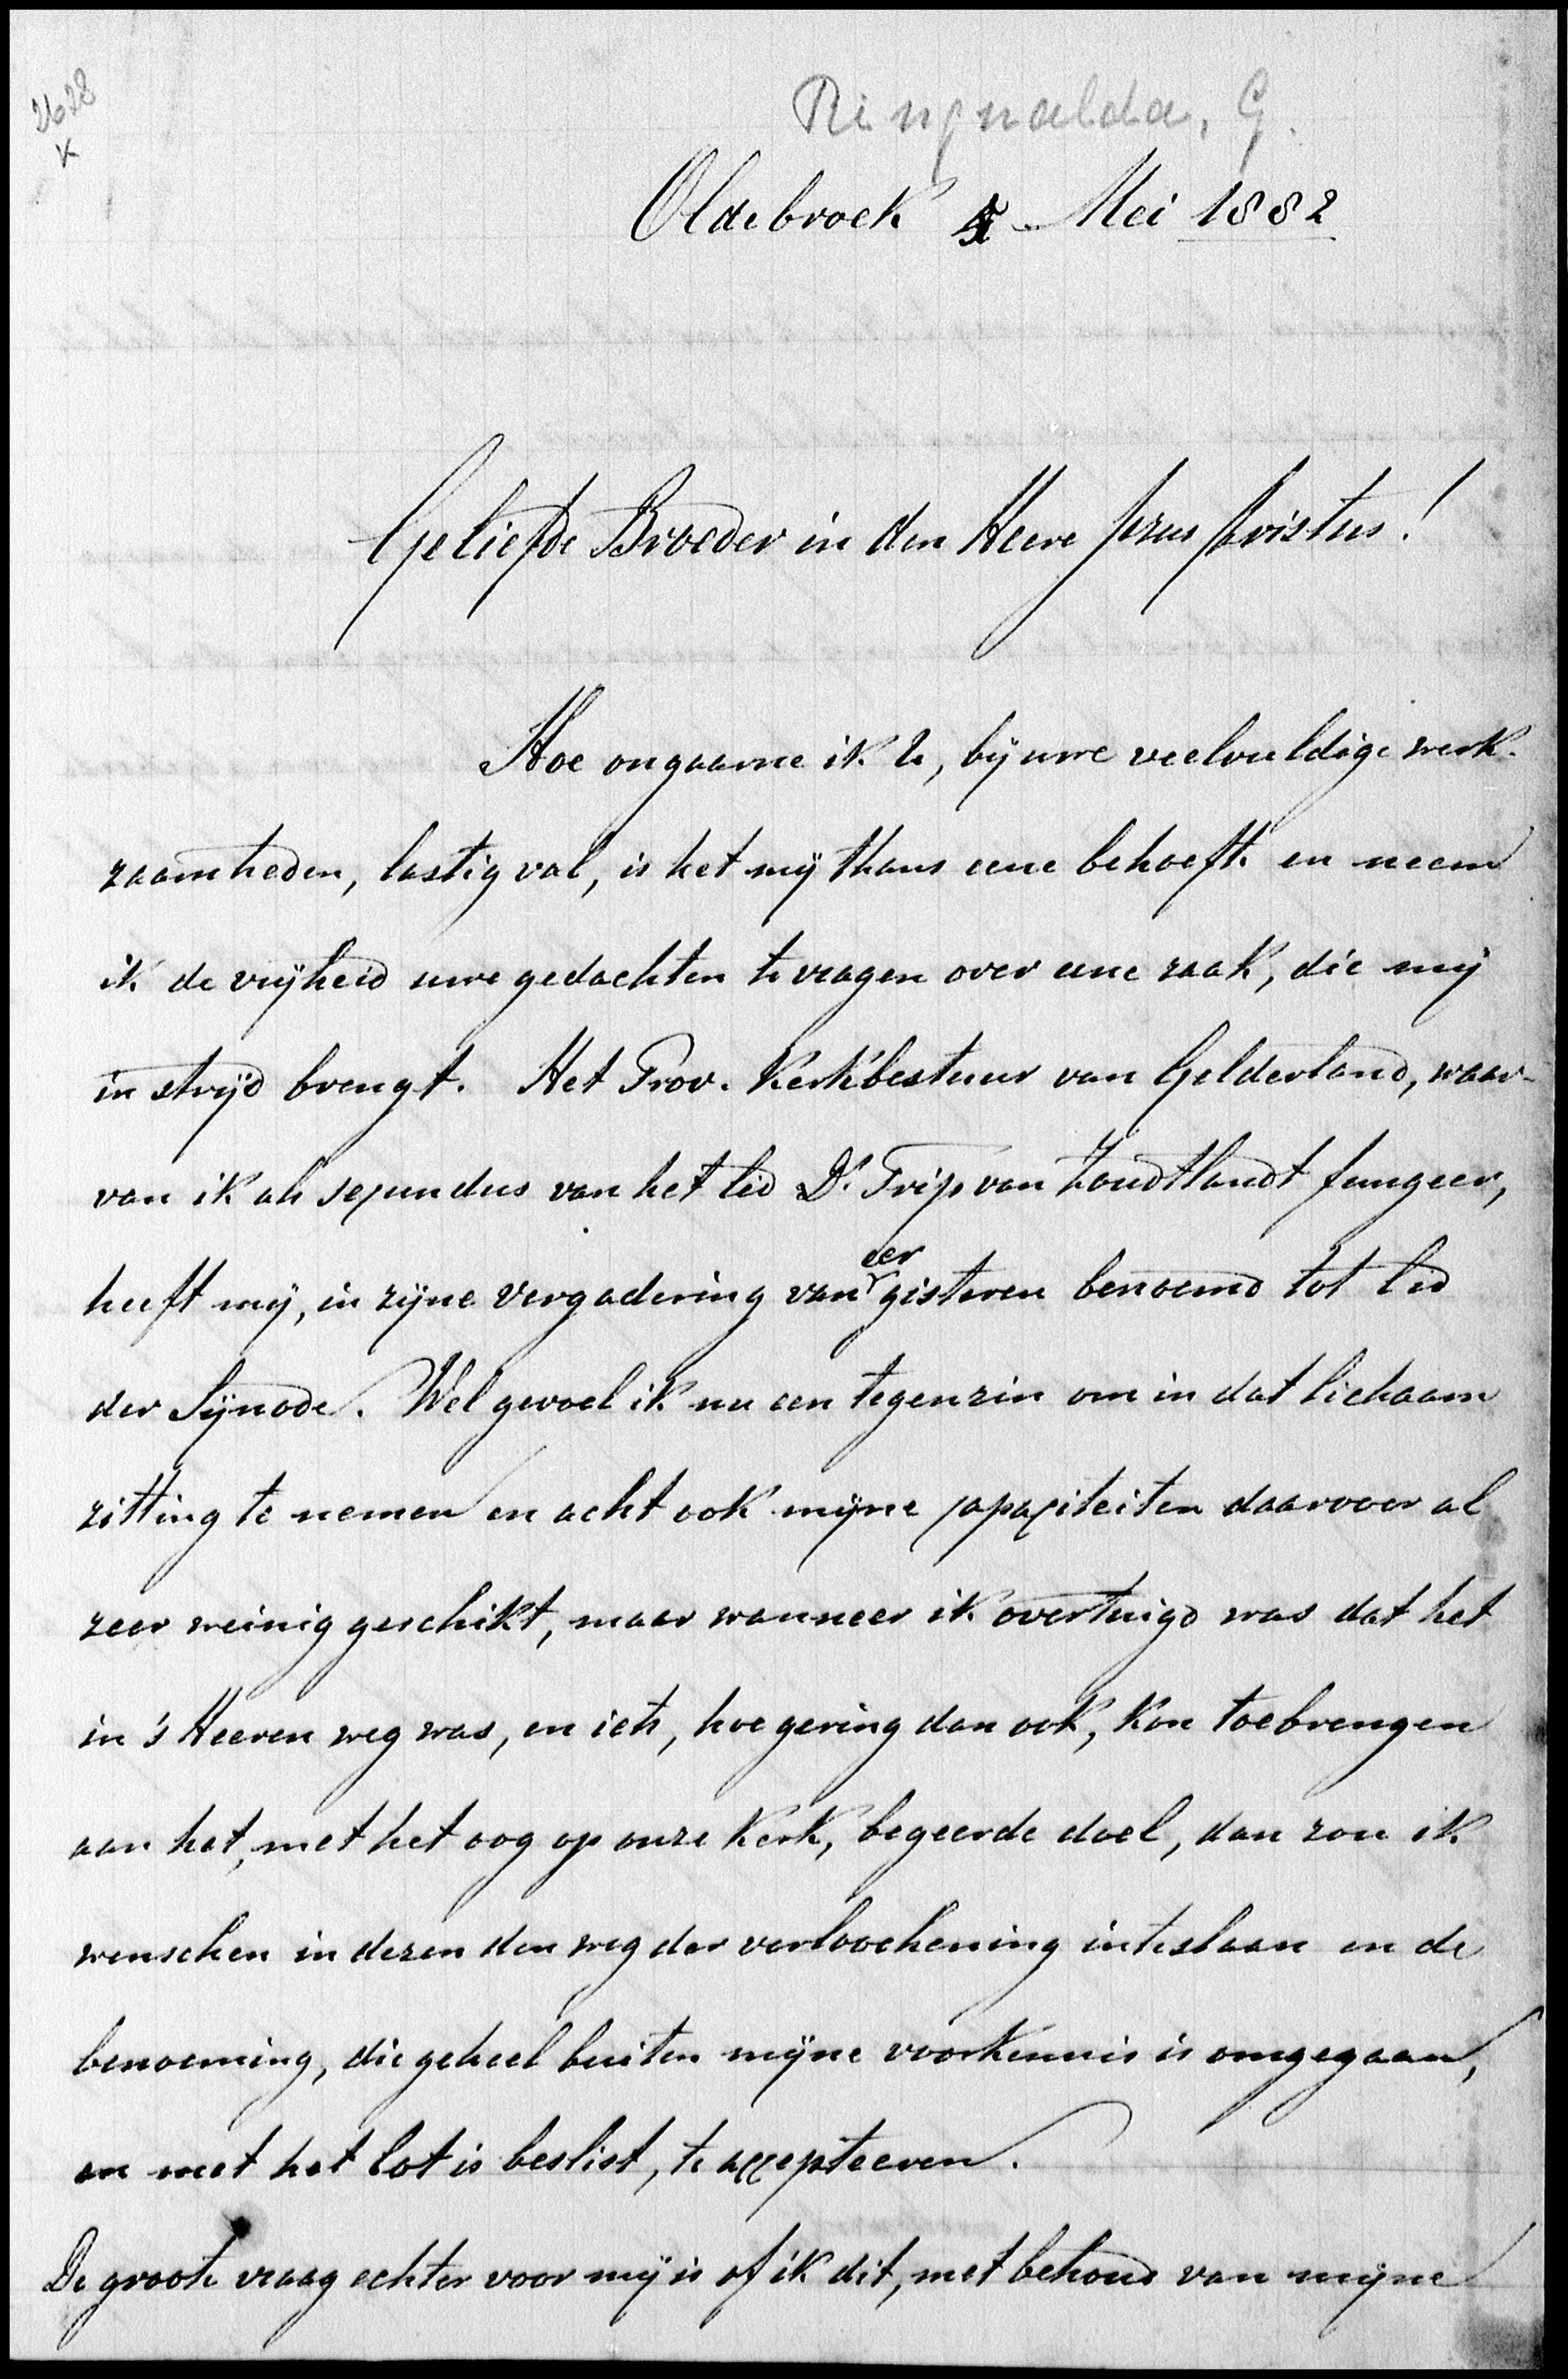 2628
x
Ringnalda, G.
Oldebroek 5 Mei 1882
Geliefde Broeder in den Heere Jezus Christus!
Hoe ongaarne ik U, bij uwe veelvuldige werk-
zaamheden, lastig val, is het mij thans eene behoefte en neem
ik de vrijheid uwe gedachten te vragen over eene zaak, die mij
in strijd brengt. Het Prov. Kerkbestuur van Gelderland, waar-
van ik als secundus van het lid Dr. Trip van Zoudtlandt fungeer,
heeft mij, in zijne vergadering van eergisteren benoemd tot lid
der Synode. Wel gevoel ik nu een tegenzin om in dat lichaam
zitting te nemen en acht ook mijne capaciteiten daarvoor al
zeer weinig geschikt, maar wanneer ik overtuigd was dat het
in 's Heeren weg was, en iets, hoe gering dan ook, kon toebrengen
aan het, met het oog op onze Kerk, begeerde doel, dan zou ik
wenschen in dezen den weg der verloochening inteslaan en de
benoeming, die geheel buiten mijne voorkennis is omgegaan,
en met het lot is beslist, te accepteeren.
De groote vraag echter voor mij is of ik dit, met behoud van mijne